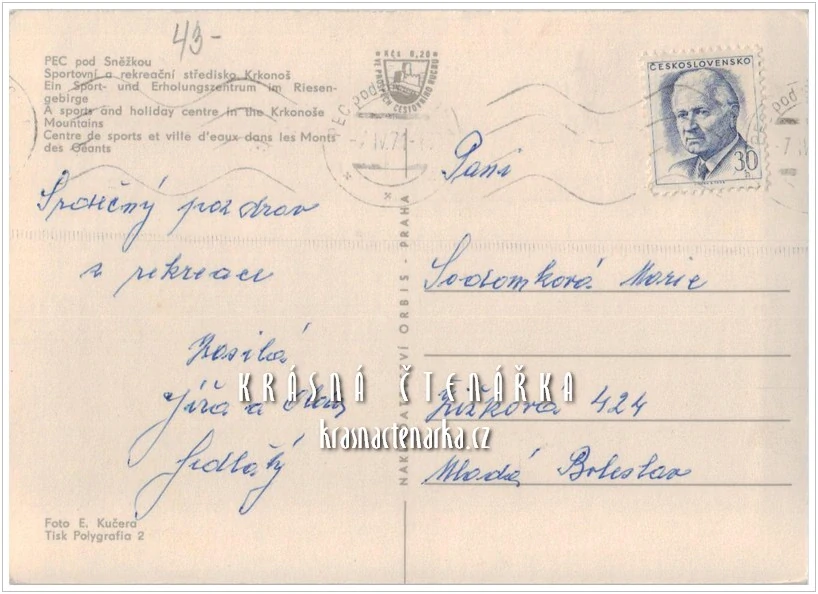 43-
PEC pod Sněžkou
Sportovní a rekreační středisko Krkonoš
Ein Sport- und Erholungszentrum im Riesen-
gebirge
A sports and holiday centre in the Krkonoše
Mountains
Centre de sports et ville d'eaux dans les Monts
des Géants
Kčs 0,20
VE PROSPĚCH CESTOVNÍHO RUCHU
PEC pod
-7.IV.71-
ČESKOSLOVENSKO
30 h
pod
-7.IV
Paní
Srdečný pozdrav
z rekreace
Zasílá
Jíra a
Sedláčký
Sodomková Marie
Žižková 424
Mladá Boleslav
NAKLADATELSTVÍ ORBIS - PRAHA
KRÁSNÁ ČTENÁŘKA
krasnactenarka.cz
Foto E. Kučera
Tisk Polygrafia 2